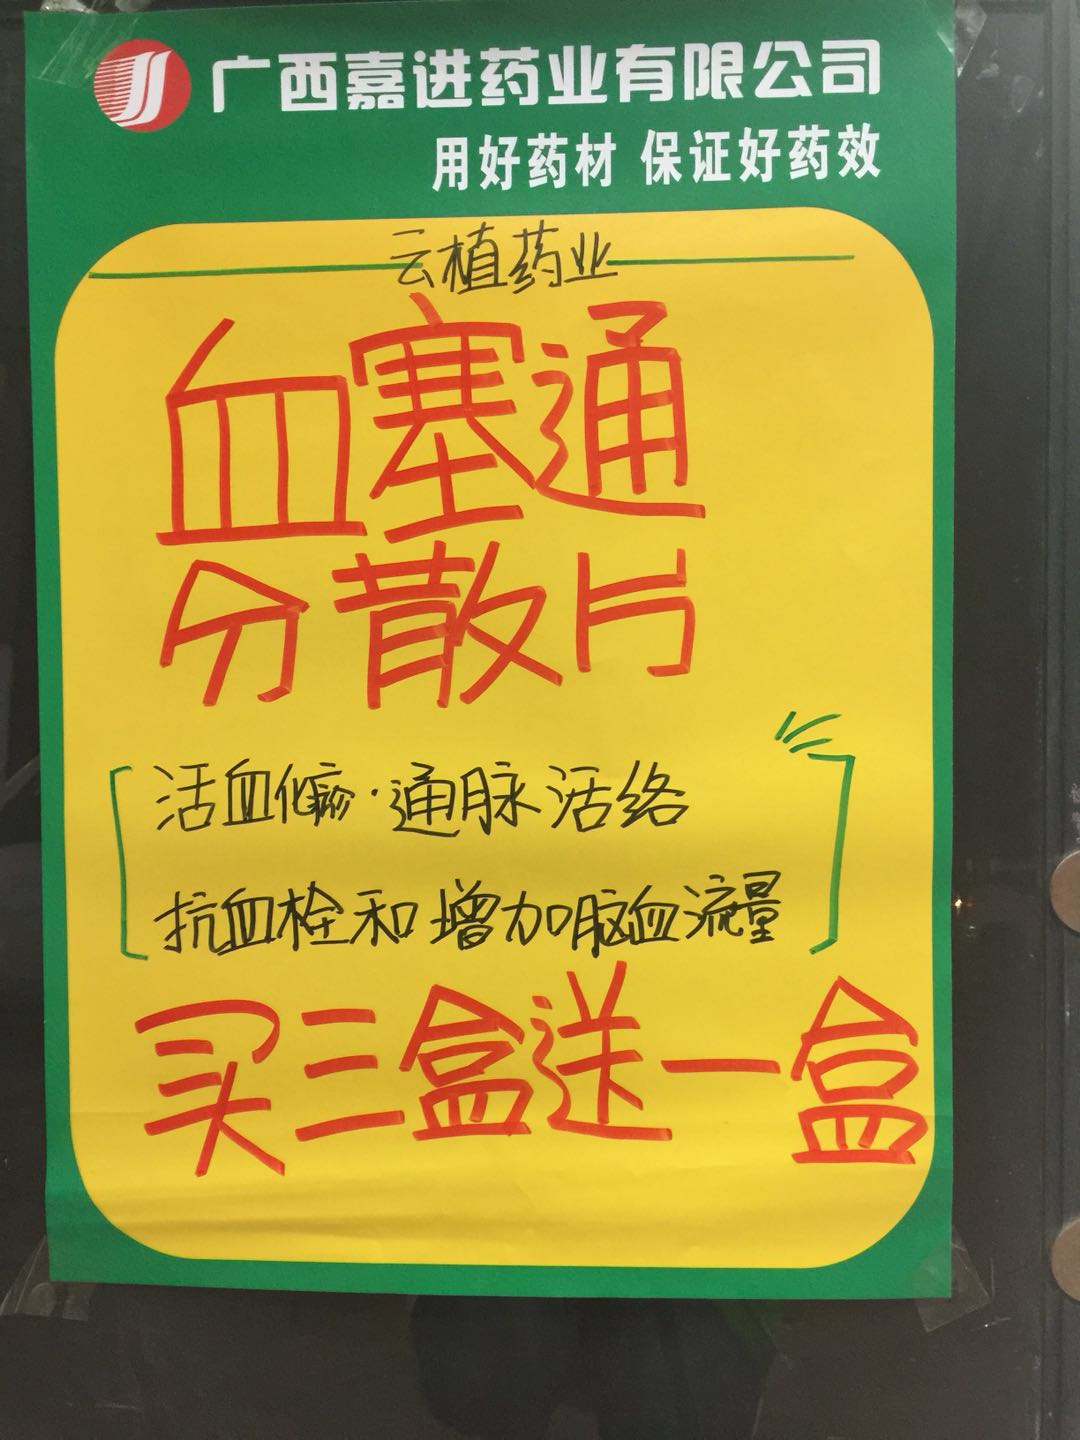 广西嘉进药业有限公司
用好药材 保证好药效
云植药业
血塞通
分散片
活血化瘀·通脉活络
抗血栓和增加脑血流量
买三盒送一盒